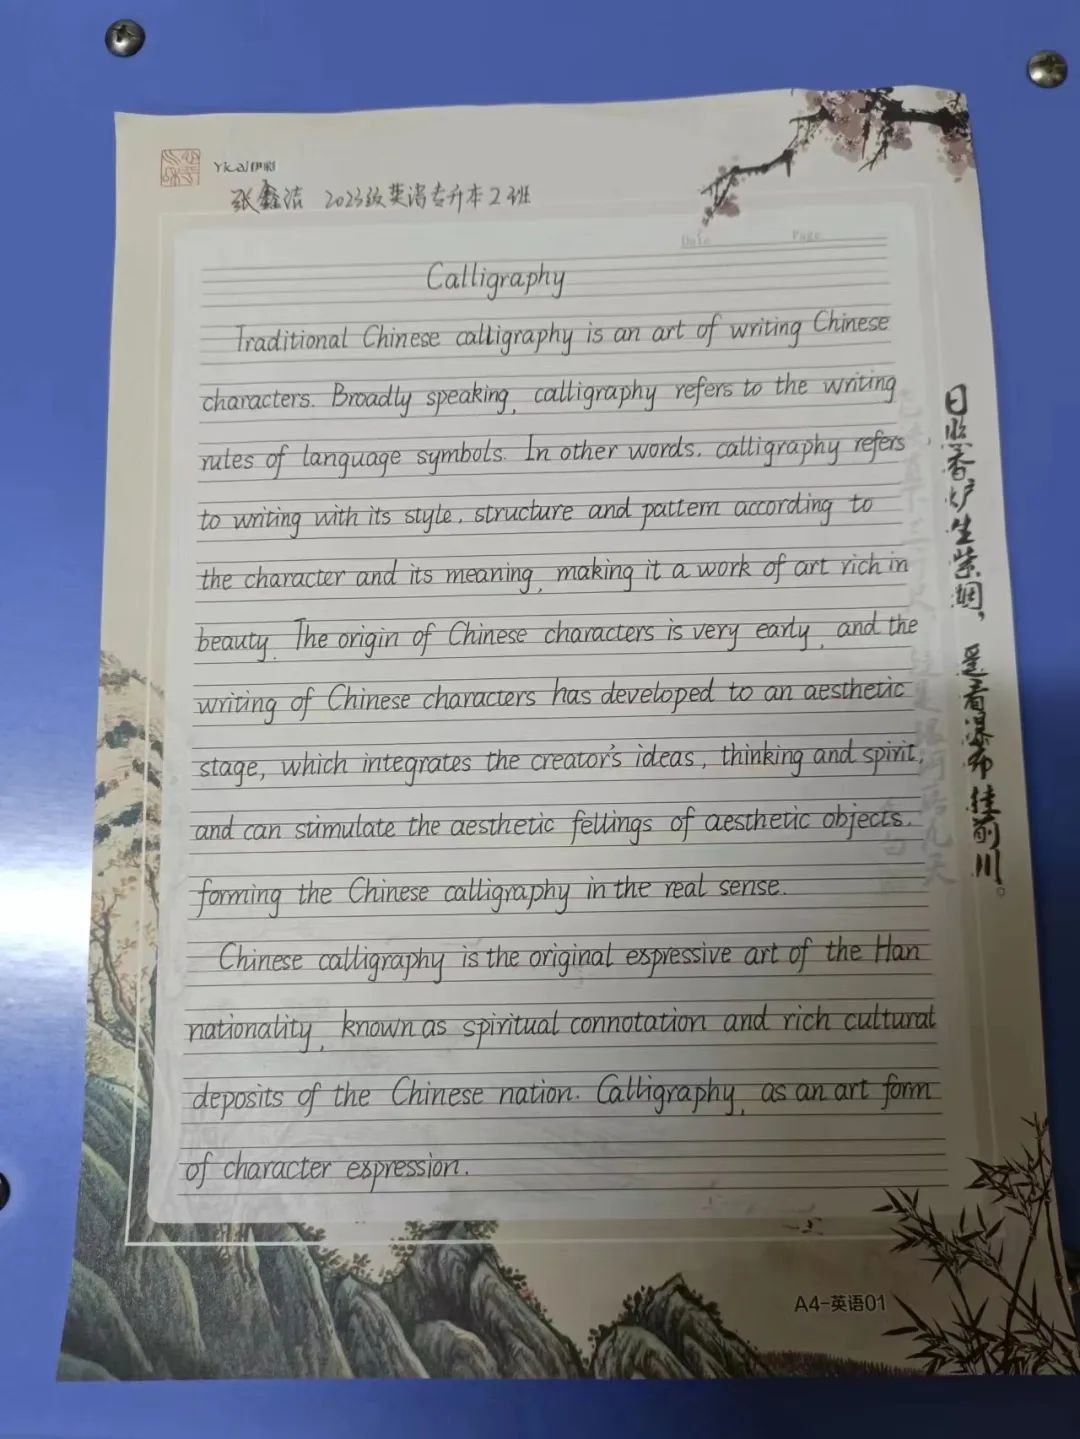 Yical伊彩
张鑫洁 2023级英语专升本2班
Date Page
Calligraphy
Traditional Chinese calligraphy is an art of writing Chinese
characters. Broadly speaking, calligraphy refers to the writing
rules of language symbols. In other words, calligraphy refers
to writing with its style, structure and pattern according to
the character and its meaning, making it a work of art rich in
beauty. The origin of Chinese characters is very early, and the
writing of Chinese characters has developed to an aesthetic
stage, which integrates the creator's ideas, thinking and spirit,
and can stimulate the aesthetic fellings of aesthetic objects.
forming the Chinese calligraphy in the real sense.
Chinese calligraphy is the original expressive art of the Han
nationality, known as spiritual connotation and rich cultural
deposits of the Chinese nation. Calligraphy, as an art form
of character expression.
日照香炉生紫烟，遥看瀑布挂前川。
A4-英语01